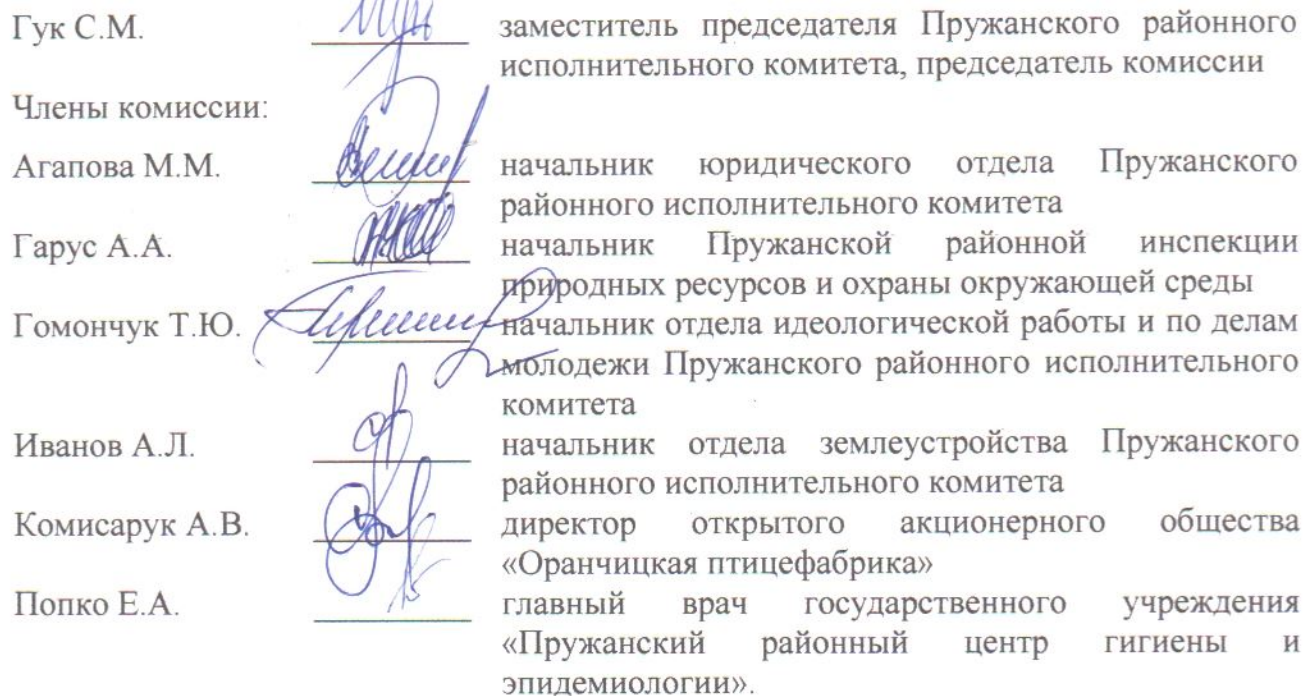 Гук С.М. заместитель председателя Пружанского районного
исполнительного комитета, председатель комиссии
Члены комиссии:
Агапова М.М. начальник юридического отдела Пружанского
районного исполнительного комитета
Гарус А.А. начальник Пружанской районной инспекции
природных ресурсов и охраны окружающей среды
Гомончук Т.Ю. начальник отдела идеологической работы и по делам
молодежи Пружанского районного исполнительного
комитета
Иванов А.Л. начальник отдела землеустройства Пружанского
районного исполнительного комитета
Комисарук А.В. директор открытого акционерного общества
«Оранчицкая птицефабрика»
Попко Е.А. главный врач государственного учреждения
«Пружанский районный центр гигиены и
эпидемиологии».